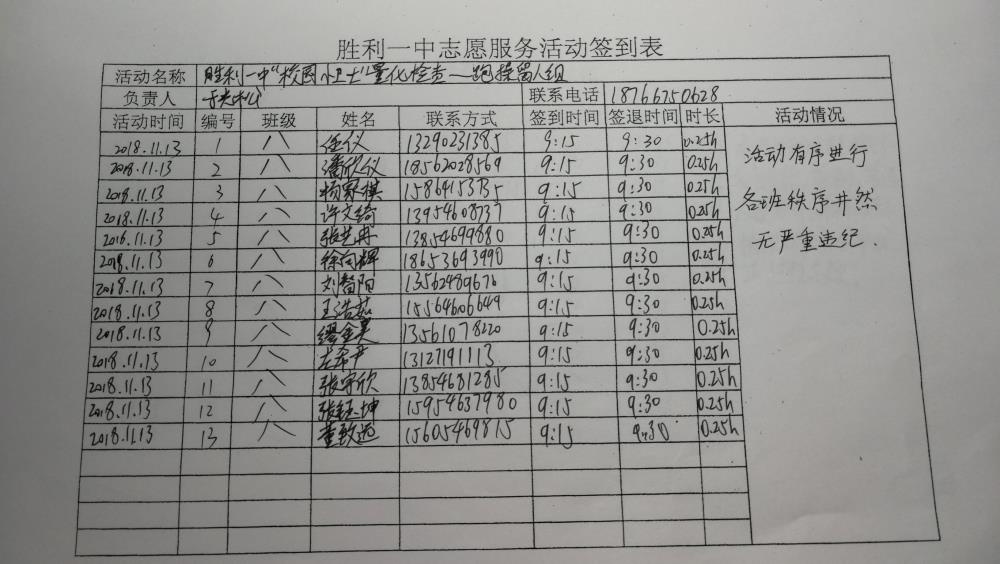 胜利一中志愿服务活动签到表
活动名称 胜利一中"校园小卫士"量化检查—跑操留人组
负责人 联系电话 18766750628
活动时间 编号 班级 姓名 联系方式 签到时间 签退时间 时长 活动情况
2018.11.13 1 八 任仪 13290231385 9:15 9:30 0.25h
2018.11.13 2 八 潘欣仪 18562028569 9:15 9:30 0.25h
2018.11.13 3 八 杨家棋 15864153735 9:15 9:30 0.25h
2018.11.13 4 八 许文绮 13954608737 9:15 9:30 0.25h
2018.11.13 5 八 张艺冉 13854699880 9:15 9:30 0.25h
2018.11.13 6 八 徐向辉 18653693990 9:15 9:30 0.25h
2018.11.13 7 八 刘智阳 13562489676 9:15 9:30 0.25h
2018.11.13 8 八 王浩茹 15564606649 9:15 9:30 0.25h
2018.11.13 9 八 13561078220 9:15 9:30 0.25h
2018.11.13 10 八 13127191113 9:15 9:30 0.25h
2018.11.13 11 八 张宇欣 13854681285 9:15 9:30 0.25h
2018.11.13 12 八 张钰坤 15954637980 9:15 9:30 0.25h
2018.11.13 13 八 董致远 15605469815 9:15 9:30 0.25h
活动有序进行
各班秩序井然
无严重违纪.